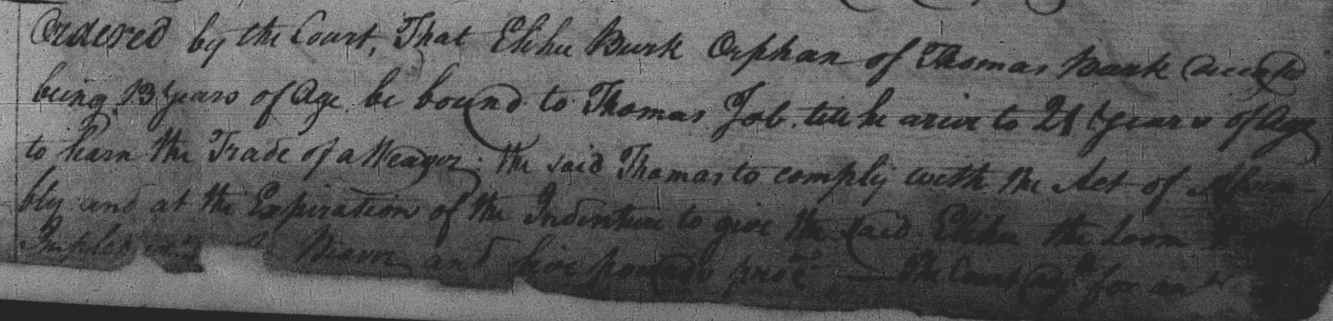 Ordered by the Court, That Elihu Burk Orphan of Thomas Burk deceased
being 13 years of Age be bound to Thomas Job. till he arive to 21 years of Age
to learn the Trade of a Weavor. the said Thomas to comply with the Act of Assem-
bly and at the Expiration of the Indenture to give the said Elihu the Loom
and five pounds proc — The Court adjd. for